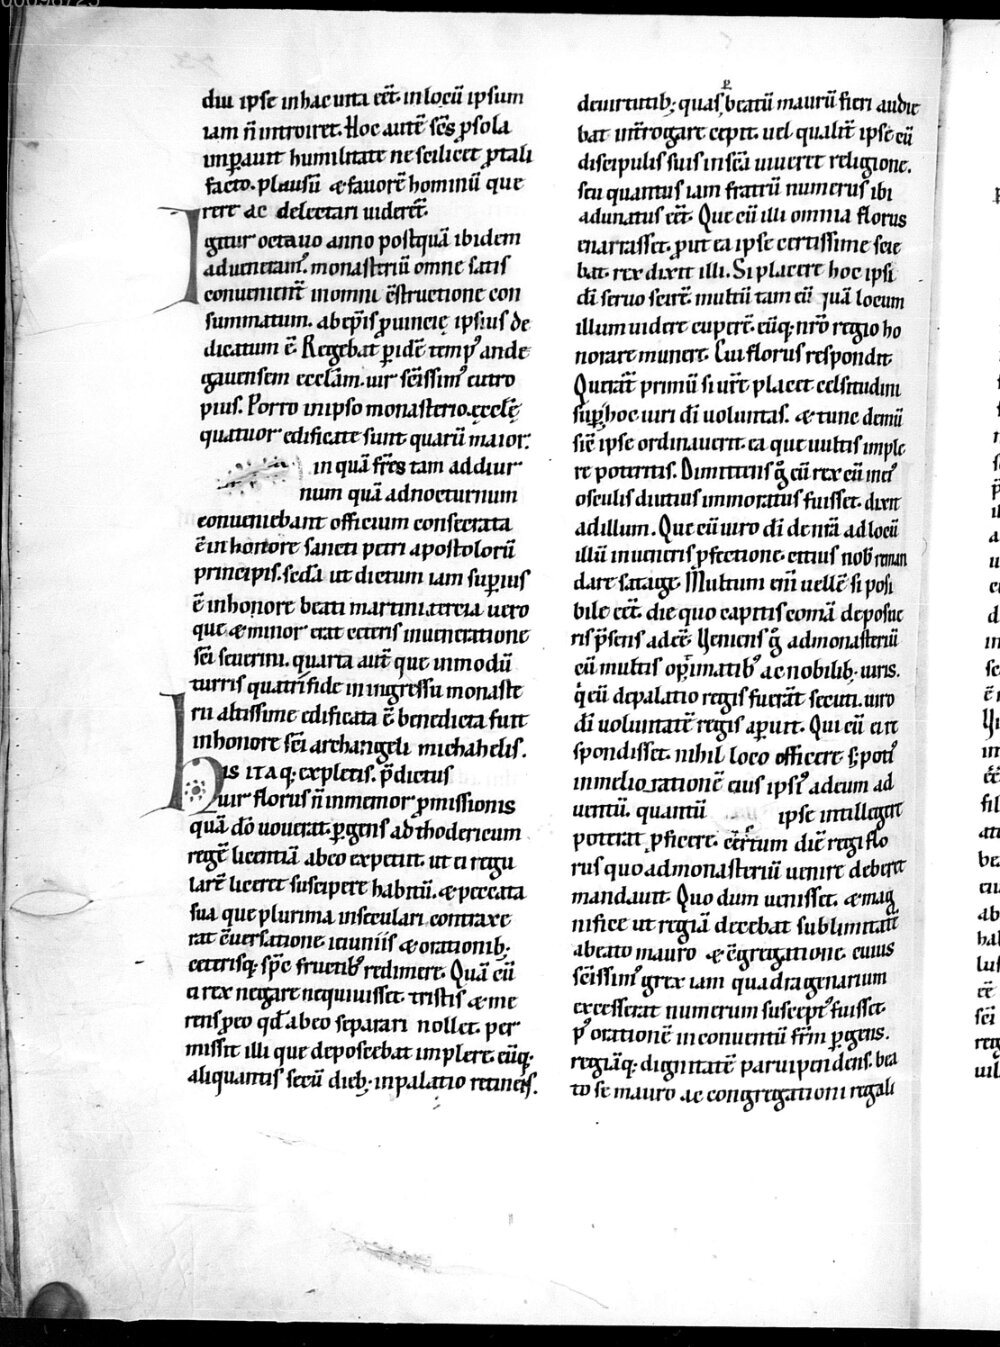 diu ipse in hac uita eēt. in locū ipsum
iam n̄ introiret. Hoc autē sc̄s ꝓ sola
imꝑauit humilitate ne scilicet ꝓ tali
facto. plausū & fauorē hominū que
rere ac delectari uideret̄.
Igitur octauo anno postquā ibidem
aduenerant. monasteriū omne satis
conuenient̄ in omni ↄ̄structione con
summatum. ab ep̄is ꝓuincię ipsius de
dicatum ē. Regebat ꝑ idē tempꝰ ande
gauensem eccl̄am. uir sc̄issimꝰ eutro
pius. Porro in ipso monasterio. eccl̄ę
quatuor edificate sunt quarū maior.
in quā fr̄es tam ad diur
num quā ad nocturnum
conueniebant officium consecrata
ē in honore sancti petri apostolorū
principis. sed̄a ut dictum iam suꝑius
ē in honore beati martini. tercia uero
que & minor erat ceteris in ueneratione
sc̄i seuerini. quarta aut̄ que in modū
turris quatrifide in ingressu monaste
rii altissime edificata ē benedicta fuit
in honore sc̄i archangeli michahelis.
His itaq; expletis. p̄dictus
uir florus n̄ inmemor ꝓmissionis
quā dō uouerat. ꝑgens ad thodericum
regē licentiā ab eo expetiit. ut ei regu
larē liceret suscipere habitū. & peccata
sua que plurima in seculari contraxe
rat ↄ̄uersatione. ieiuniis & orationib;
ceterisq; spc̄ fructibꝰ redimere. Quā cū
ei rex negare nequiuisset. tristis & me
rens ꝓ eo qđ ab eo separari nollet. per
misit illi que deposcebat implere. eūq;
aliquantis secū dieb; in palatio retinens.
de uirtutib; quas ꝑ beatū maurū fieri audie
bat int̄rogare cepit. uel qualit̄ ipse cū
discipulis suis in sc̄a uiueret religione.
seu quantus iam fratrū numerus ibi
adunatus eēt. Que cū illi omnia florus
enarrasset. put ea ipse certissime scie
bat. rex dixit illi. Si placere hoc ipsi
dī seruo scirē. multū tam cū quā locum
illum uidere cuperē. eūq; nr̄o regio ho
norare munere. Cui florus respondit.
Querat̄ primū si ur̄e placet celsitudini
suꝑ hoc uiri dī uoluntas. & tunc demū
sic̄ ipse ordinauerit. ea que uultis imple
re poteritis. Dimittens g̊ eū rex cū inei
osculis diutius immoratus fuisset. dixit
ad illum. Que cū uiro dī de nr̄a ad locū
illū inueneris ꝓfectione. citius nob̄ man
dare satage. Multum eni uellē si possi
bile eēt. die quo capitis comā deposue
ris p̄sens adeē. Ueniens g̊ ad monasteriū
cū multis optimatibꝰ ac nobilib; uiris.
q̇ eū de palatio regis fuerāt secuti. uiro
dī uoluntatē regis aperuit. Qui cū ei re
spondisset. nihil loco officere s; potiꝰ
in meliorationē eius ipsiꝰ ad eum ad
uentū. quantū ipse intelligere
poterat ꝓficere. certum diē regi flo
rus quo ad monasteriū uenire deberet
mandauit. Quo dum uenisset. & mag
nifice ut regiā decebat sublimitatē
a beato mauro & ↄ̄gregatione. cuius
sc̄issimꝰ grex iam quadragenarium
excesserat numerum susceptꝰ fuisset.
pꝰ orationē in conuentū fr̄m ꝑgens.
regiāq; dignitatē paruipendens. bea
to se mauro ac congregationi regali